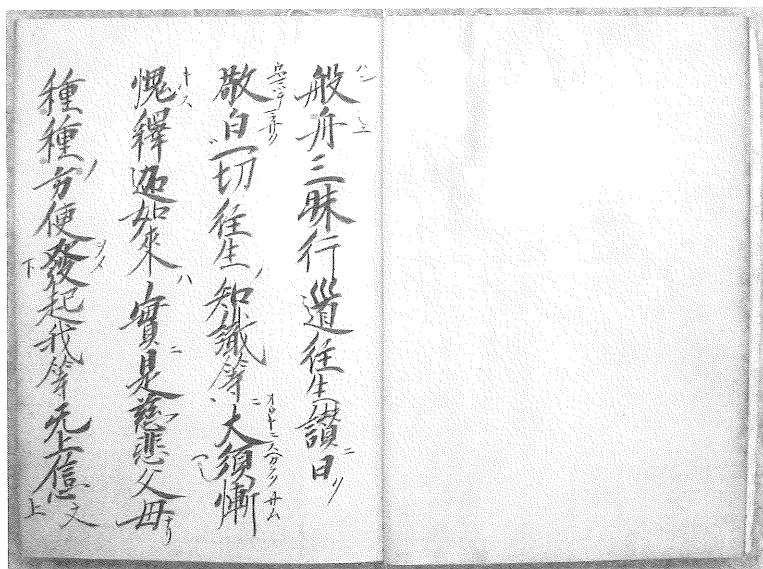 般舟三昧行道往生讃曰
敬白一切往生知識等大須慚
愧釋迦如來實是慈悲父母
種種方便發起我等无上信文